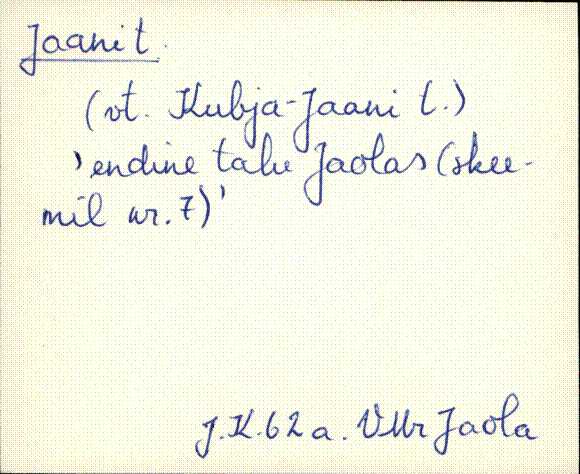 Jaani t.
(vt. Kubja-Jaani t.)
'endine talu Jaolas (skee-
mil nr. 7)'
J.K. 62 a. VMr Jaola